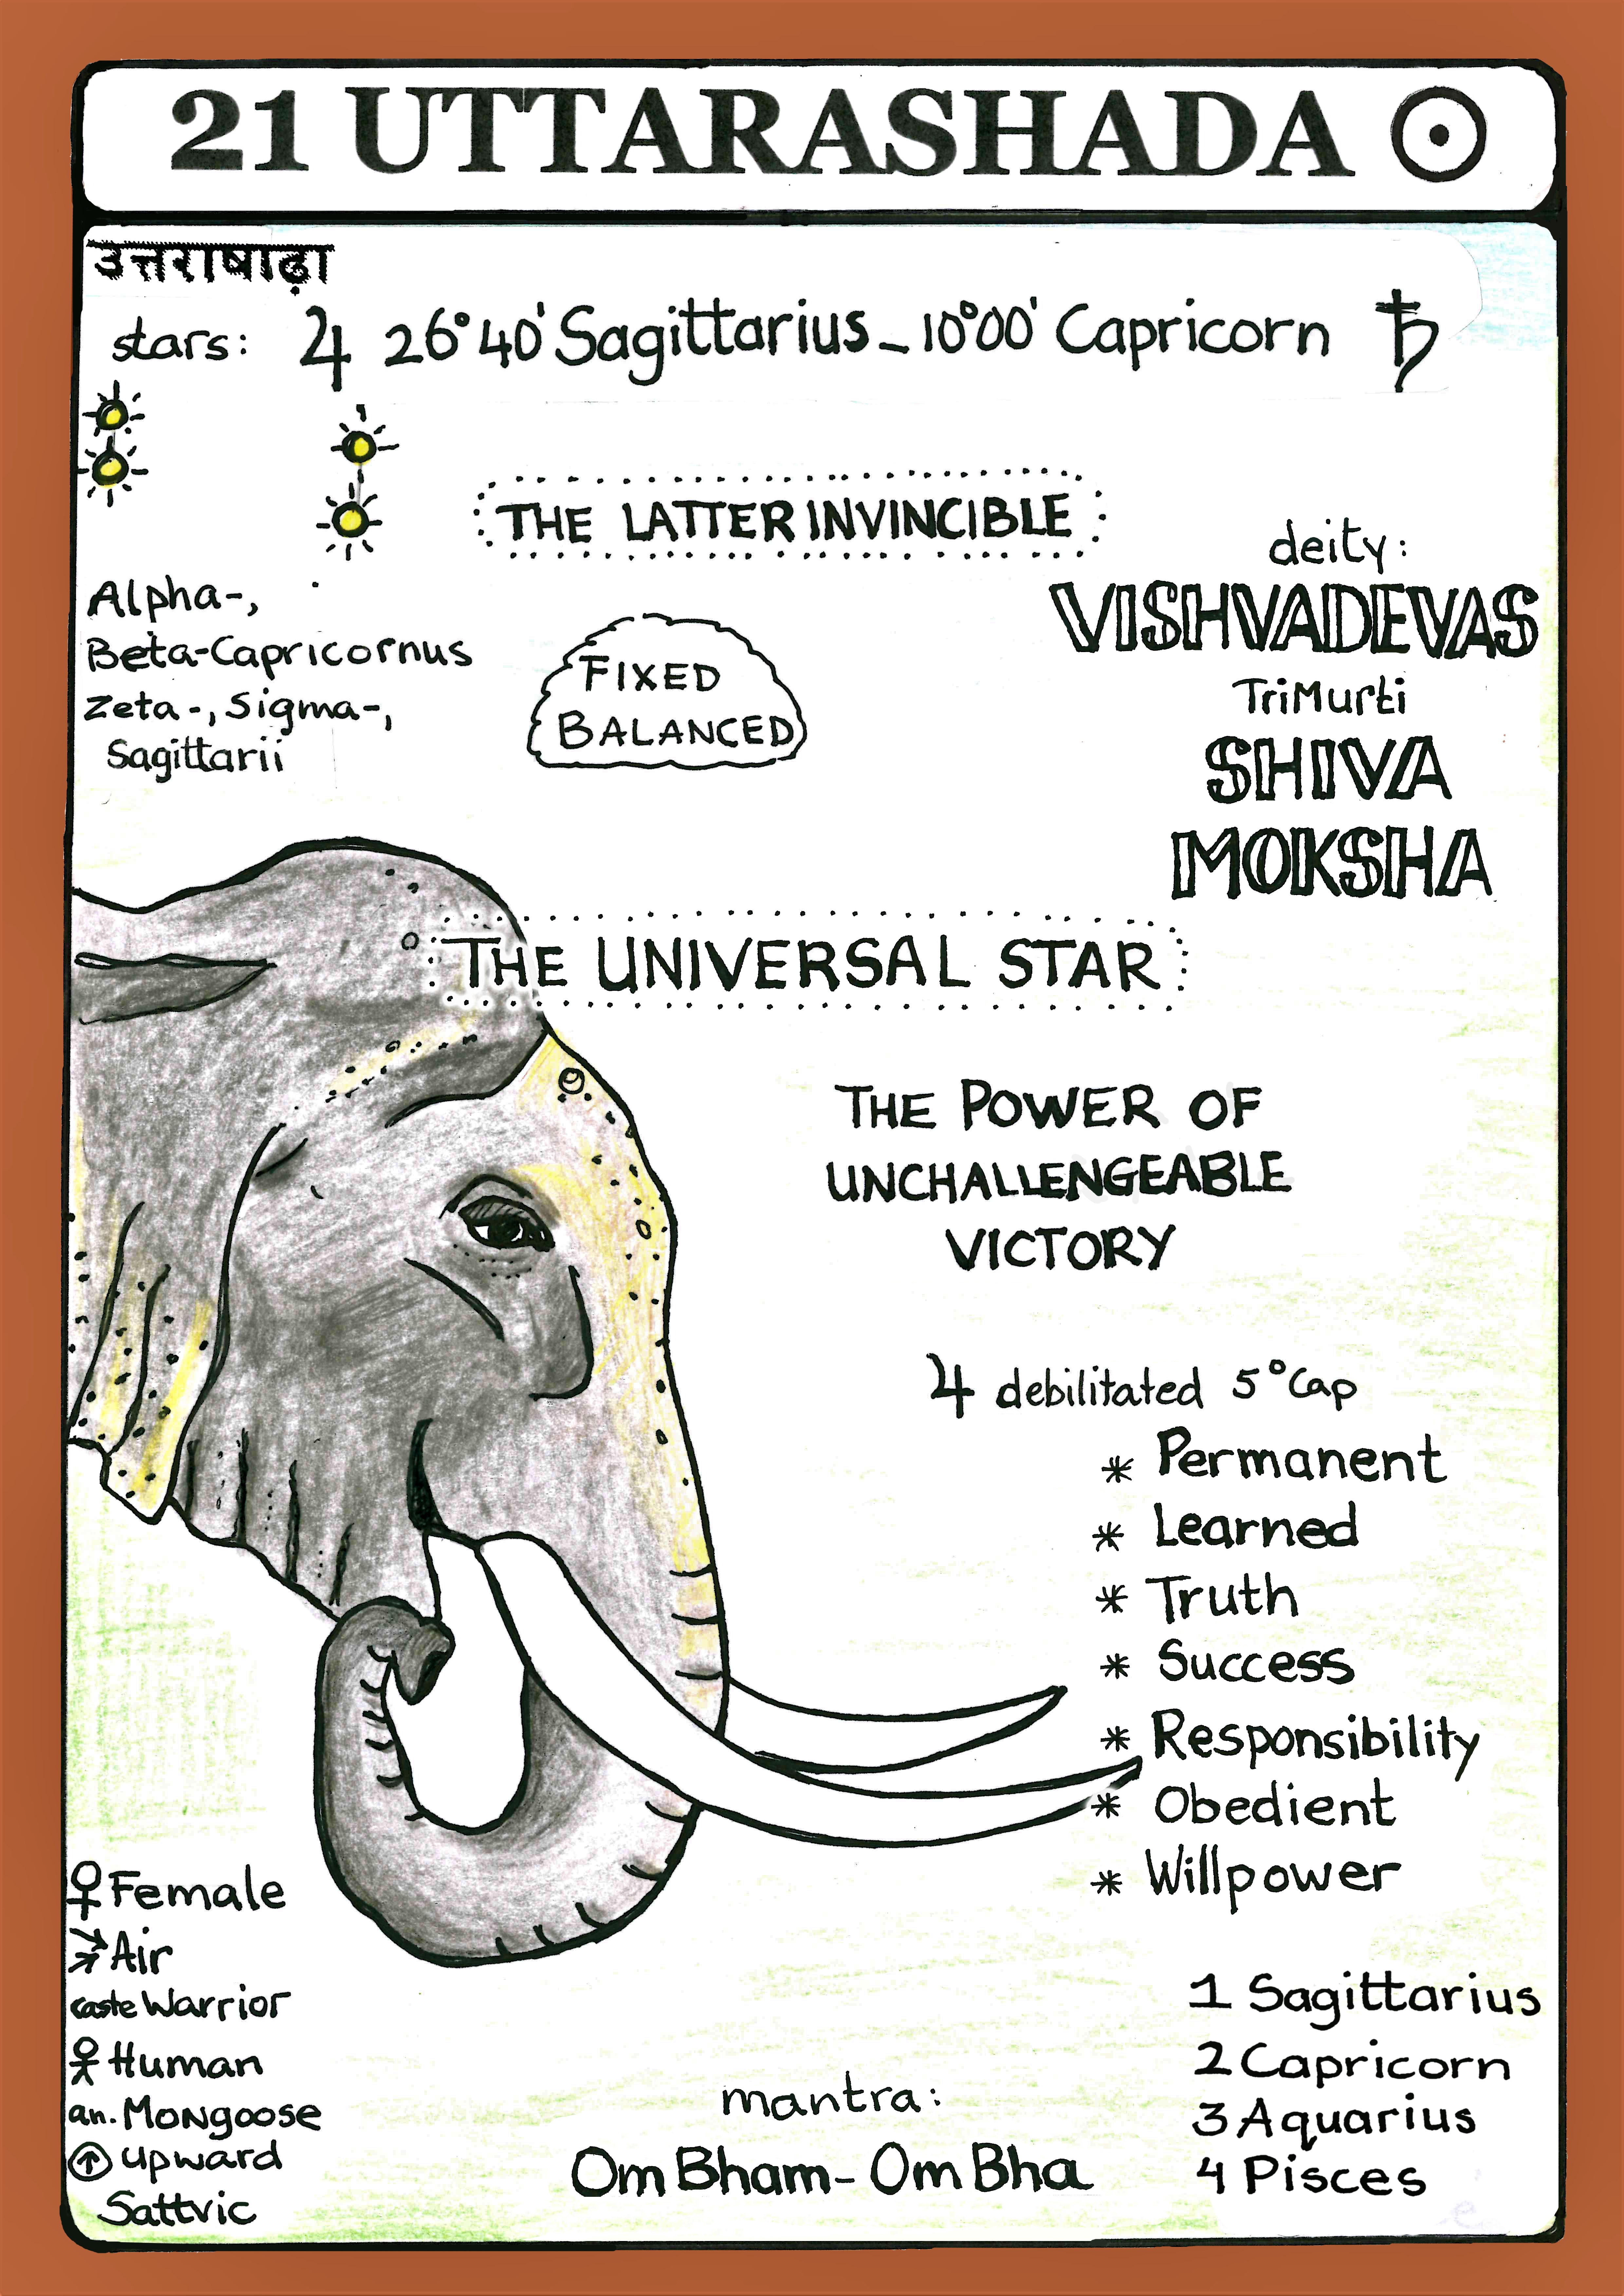 21 UTTARASHADA ☉
उत्तराषाढ़ा
stars: ♃ 26°40' Sagittarius - 10°00' Capricorn ♄
THE LATTER INVINCIBLE
Alpha-,
Beta-Capricornus
Zeta-, Sigma-,
Sagittarii
FIXED
BALANCED
deity:
VISHVADEVAS
TriMurti
SHIVA
MOKSHA
THE UNIVERSAL STAR
THE POWER OF
UNCHALLENGEABLE
VICTORY
♃ debilitated 5° Cap
* Permanent
* Learned
* Truth
* Success
* Responsibility
* Obedient
* Willpower
♀ Female
Air
caste Warrior
Human
an. Mongoose
upward
Sattvic
mantra:
Om Bham - Om Bha
1 Sagittarius
2 Capricorn
3 Aquarius
4 Pisces